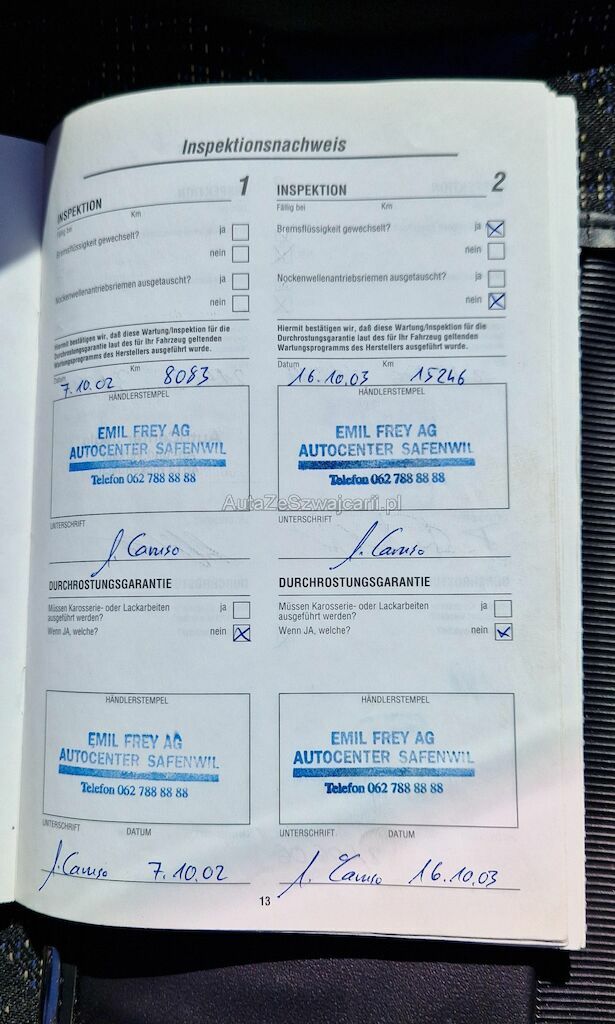 Inspektionsnachweis
INSPEKTION 1
Fällig bei Km
Bremsflüssigkeit gewechselt? ja
nein
Nockenwellenantriebsriemen ausgetauscht? ja
nein
Hiermit bestätigen wir, daß diese Wartung/Inspektion für die
Durchrostungsgarantie laut des für Ihr Fahrzeug geltenden
Wartungsprogramms des Herstellers ausgeführt wurde.
Datum Km
7.10.02 8083
HÄNDLERSTEMPEL
EMIL FREY AG
AUTOCENTER SAFENWIL
Telefon 062 788 88 88
UNTERSCHRIFT
J. Caruso
DURCHROSTUNGSGARANTIE
Müssen Karosserie- oder Lackarbeiten ja
ausgeführt werden?
Wenn JA, welche? nein
HÄNDLERSTEMPEL
EMIL FREY AG
AUTOCENTER SAFENWIL
Telefon 062 788 88 88
UNTERSCHRIFT DATUM
J. Caruso 7.10.02
INSPEKTION 2
Fällig bei Km
Bremsflüssigkeit gewechselt? ja
nein
Nockenwellenantriebsriemen ausgetauscht? ja
nein
Hiermit bestätigen wir, daß diese Wartung/Inspektion für die
Durchrostungsgarantie laut des für Ihr Fahrzeug geltenden
Wartungsprogramms des Herstellers ausgeführt wurde.
Datum Km
16.10.03 15246
HÄNDLERSTEMPEL
EMIL FREY AG
AUTOCENTER SAFENWIL
Telefon 062 788 88 88
UNTERSCHRIFT
J. Caruso
DURCHROSTUNGSGARANTIE
Müssen Karosserie- oder Lackarbeiten ja
ausgeführt werden?
Wenn JA, welche? nein
HÄNDLERSTEMPEL
EMIL FREY AG
AUTOCENTER SAFENWIL
Telefon 062 788 88 88
UNTERSCHRIFT DATUM
J. Caruso 16.10.03
13
AutaZeSzwajcarii.pl